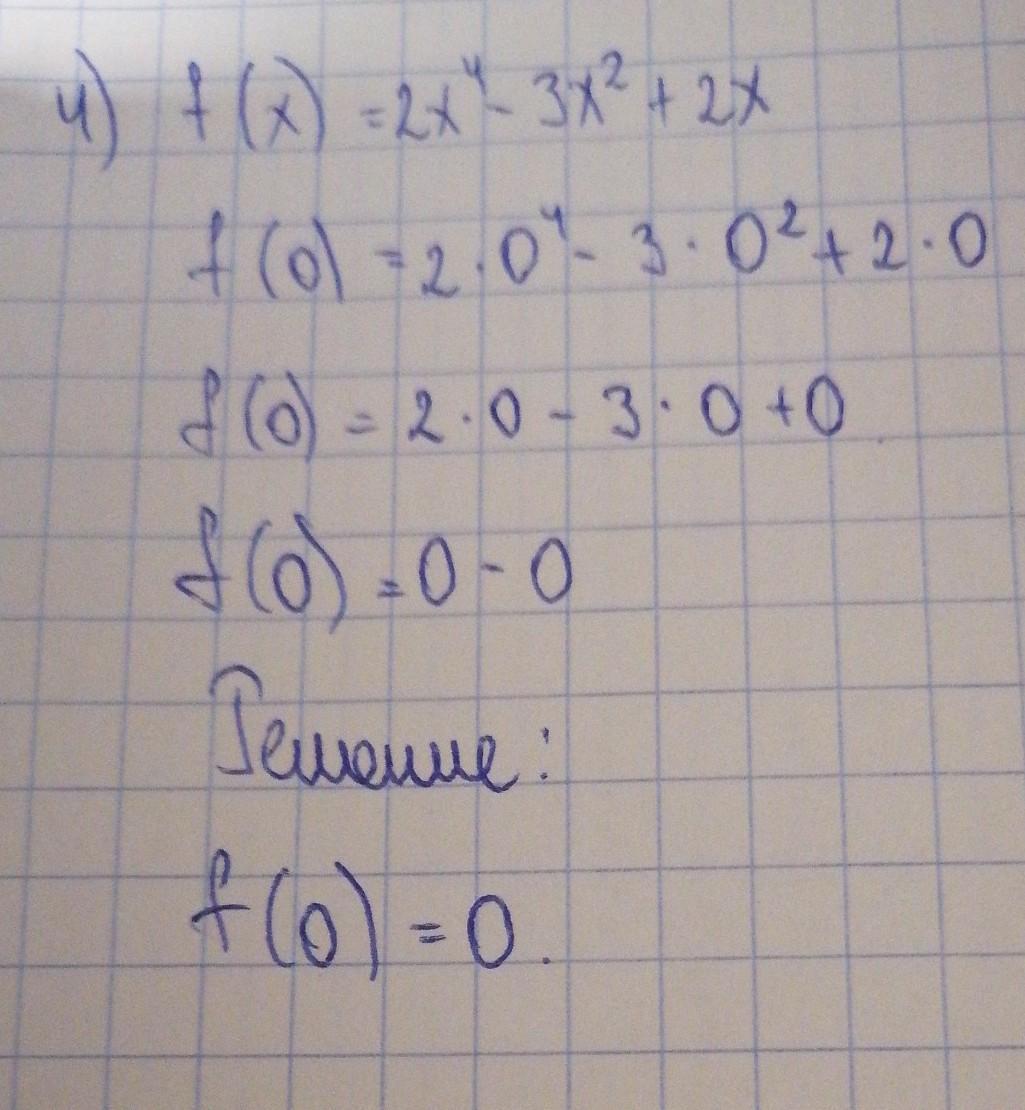 4) f(x) = 2x⁴ - 3x² + 2x
f(0) = 2 · 0⁴ - 3 · 0² + 2 · 0
f(0) = 2 · 0 - 3 · 0 + 0
f(0) = 0 - 0
Решение:
f(0) = 0.